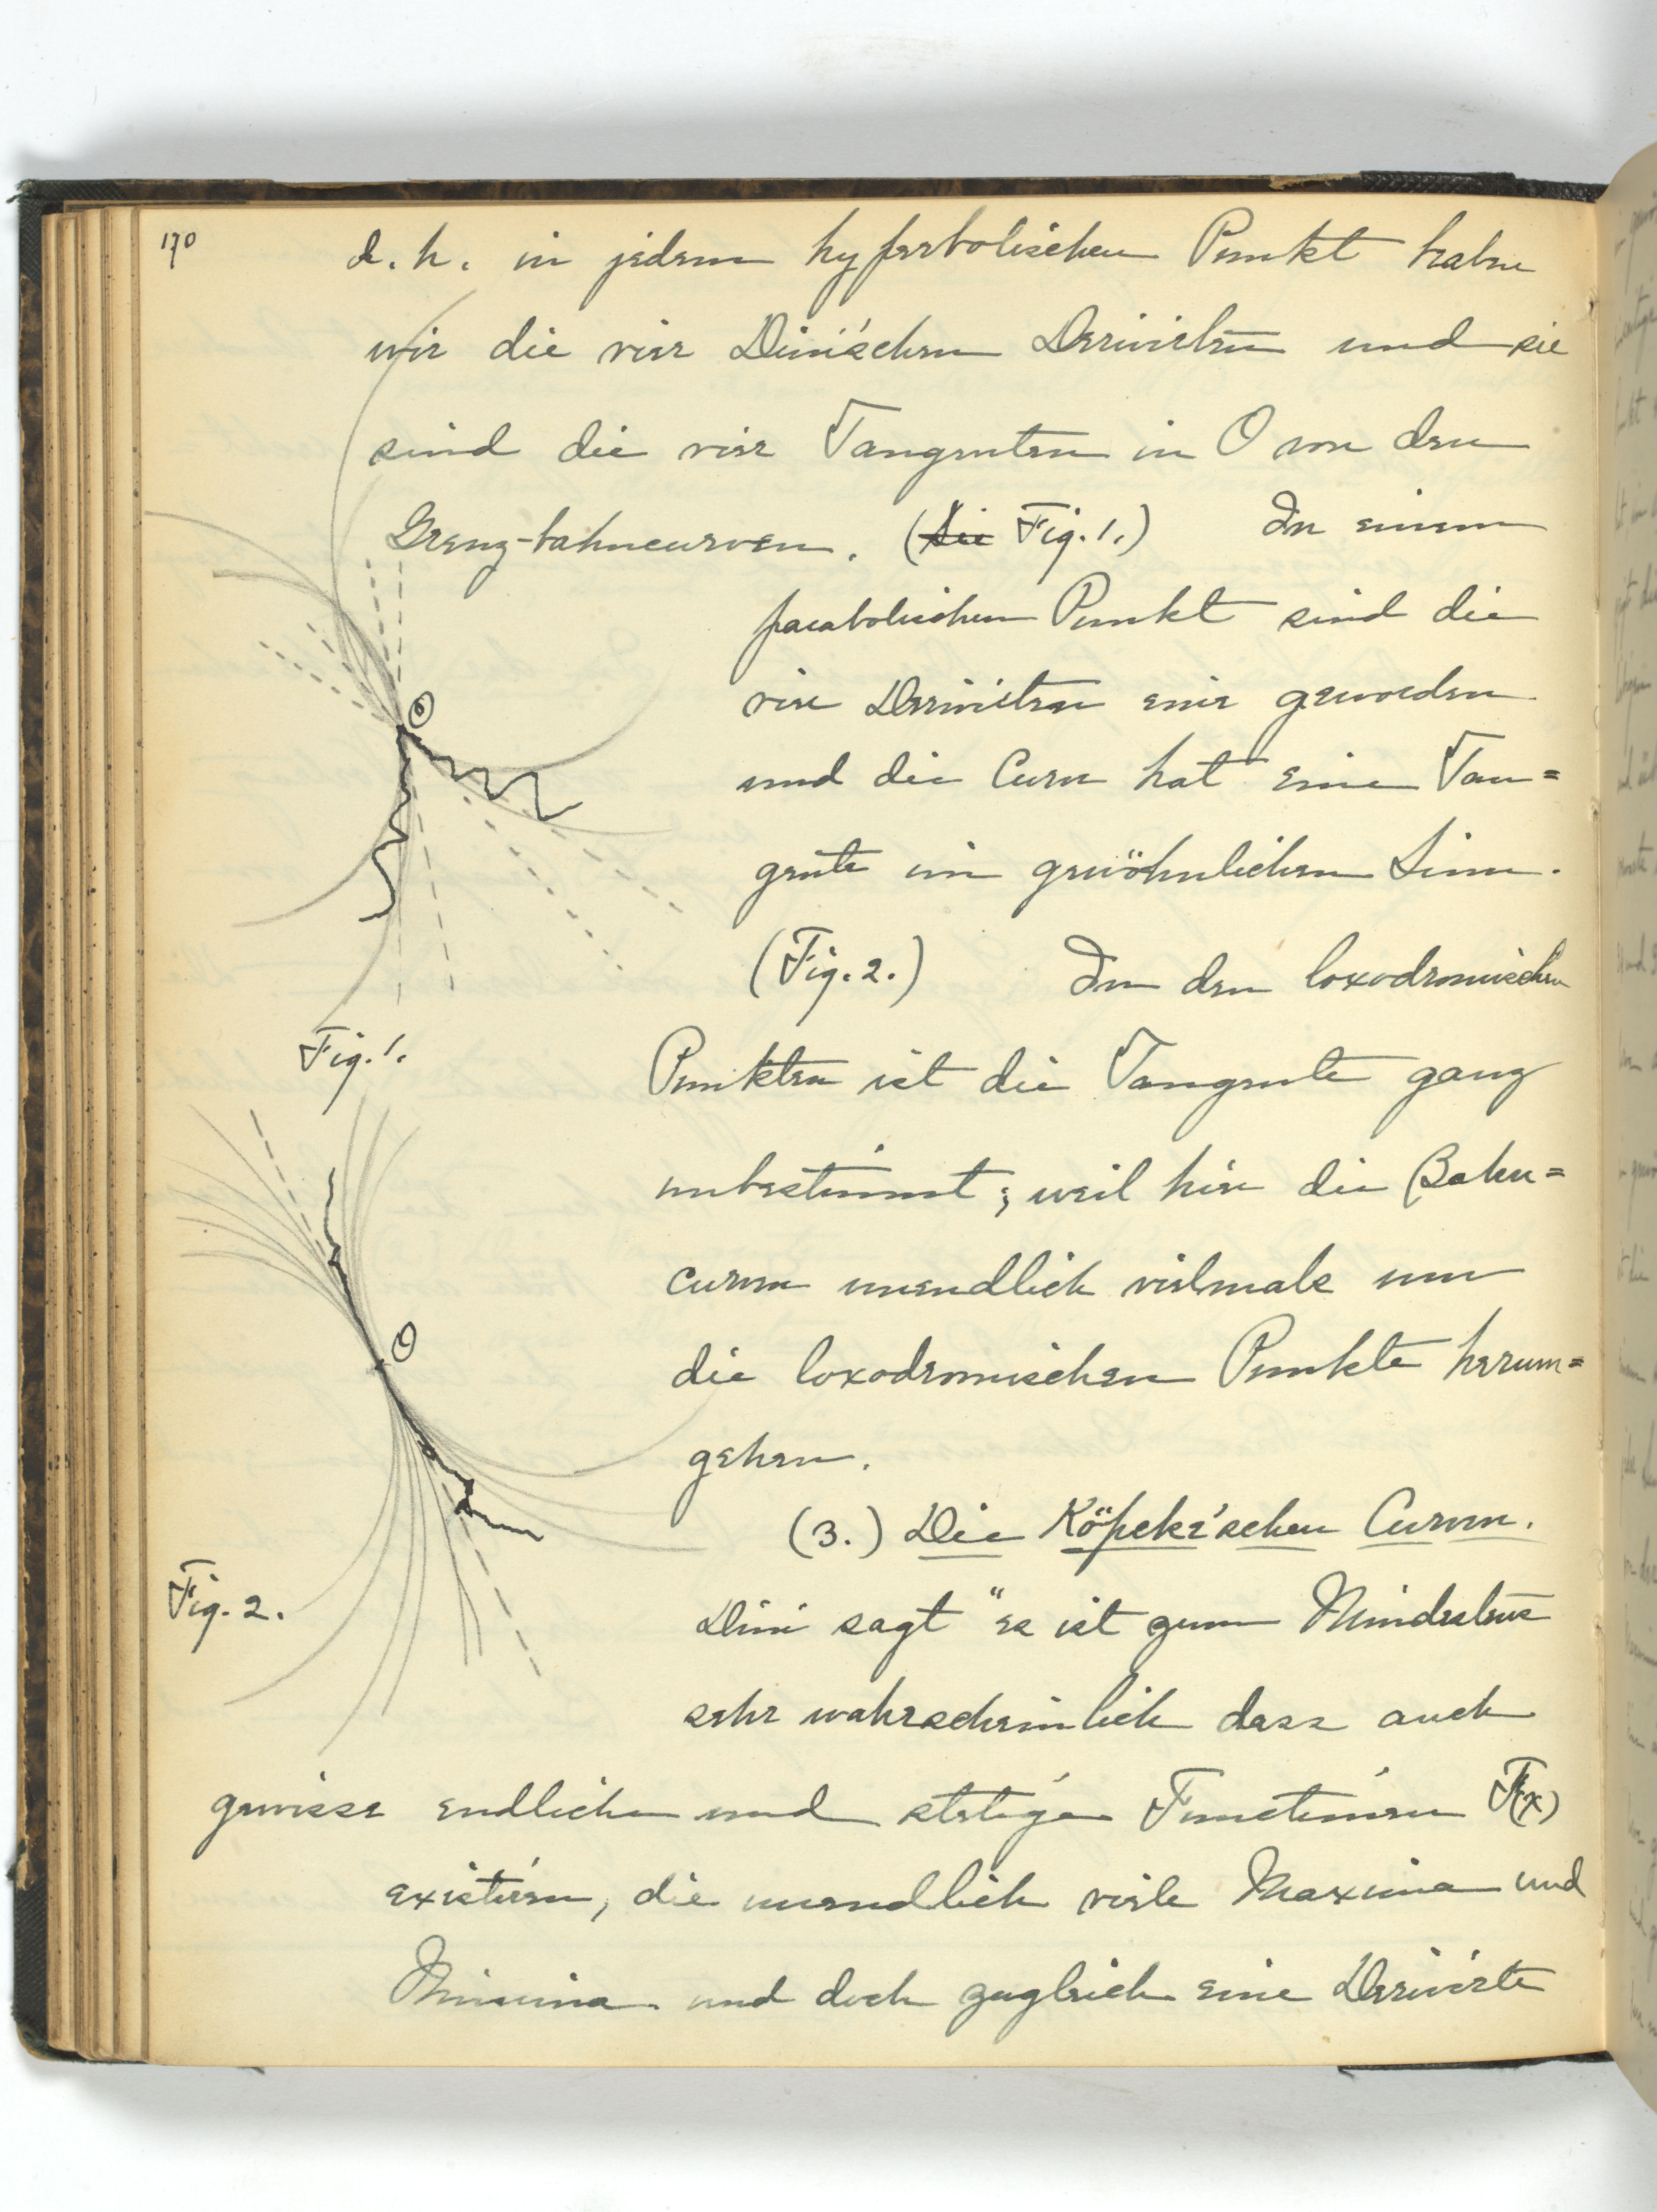 170
d.h. in jedem hyperbolischen Punkt haben
wir die vier Dini'schen Derivirten und sie
sind die vier Tangenten in O von den
Grenz-bahncurven. (Sie Fig.1.) In einem
parabolischen Punkt sind die
vier Derivirten eine geworden
und die Curve hat eine Tan=
gente im gewöhnlichen Sinne.
(Fig.2.) In den loxodromischen
O
Fig.1.
Punkten ist die Tangente ganz
unbestimmt; weil hier die Bahn=
curven unendlich vielmals um
die loxodromischen Punkte herum=
gehen.
O
Fig.2.
(3.) Die Köpcke'schen Curven.
Dini sagt "es ist zum Mindestens
sehr wahrscheinlich dass auch
gewisse endliche und stetige Functionen F(x)
existiren, die unendlich viele Maxima und
Minima und doch zugleich eine Derivirte